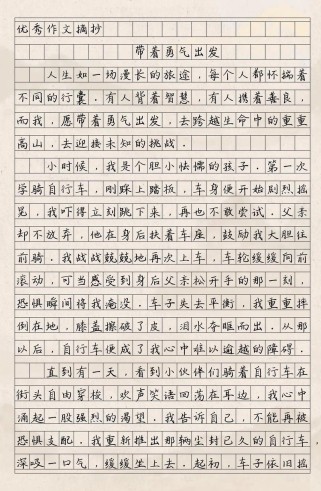 优秀作文摘抄
带着勇气出发
人生如一场漫长的旅途，每个人都怀揣着
不同的行囊．有人背着智慧，有人携着善良，
而我，愿带着勇气出发，去跨越生命中的重重
高山，去迎接未知的挑战．
小时候，我是个胆小怯懦的孩子．第一次
学骑自行车，刚踩上踏板，车身便开始剧烈摇
晃，我吓得立刻跳下来，再也不敢尝试．父亲
却不放弃，他在身后扶着车座，鼓励我大胆往
前骑．我战战兢兢地再次上车，车轮缓缓向前
滚动，可当感受到身后父亲松开手的那一刻，
恐惧瞬间将我淹没．车子失去平衡，我重重摔
倒在地，膝盖擦破了皮，泪水夺眶而出．从那
以后，自行车便成了我心中难以逾越的障碍．
直到有一天，看到小伙伴们骑着自行车在
街头自由穿梭，欢声笑语回荡在耳边，我心中
涌起一股强烈的渴望．我告诉自己，不能再被
恐惧支配．我重新推出那辆尘封已久的自行车，
深吸一口气，缓缓坐上去．起初，车子依旧摇